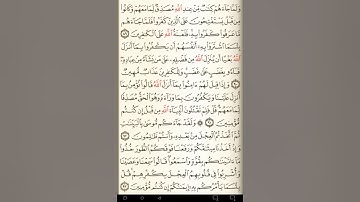 وَلَمَّا جَآءَهُمْ كِتَٰبٌ مِّنْ عِندِ ٱللَّهِ مُصَدِّقٌ لِّمَا مَعَهُمْ وَكَانُوا۟
مِن قَبْلُ يَسْتَفْتِحُونَ عَلَى ٱلَّذِينَ كَفَرُوا۟ فَلَمَّا جَآءَهُم
مَّا عَرَفُوا۟ كَفَرُوا۟ بِهِۦ ۚ فَلَعْنَةُ ٱللَّهِ عَلَى ٱلْكَٰفِرِينَ ٨٩
بِئْسَمَا ٱشْتَرَوْا۟ بِهِۦٓ أَنفُسَهُمْ أَن يَكْفُرُوا۟ بِمَآ أَنزَلَ
ٱللَّهُ بَغْيًا أَن يُنَزِّلَ ٱللَّهُ مِن فَضْلِهِۦ عَلَىٰ مَن يَشَآءُ مِنْ عِبَادِهِۦ ۖ
فَبَآءُو بِغَضَبٍ عَلَىٰ غَضَبٍ ۚ وَلِلْكَٰفِرِينَ عَذَابٌ مُّهِينٌ ٩٠
وَإِذَا قِيلَ لَهُمْ ءَامِنُوا۟ بِمَآ أَنزَلَ ٱللَّهُ قَالُوا۟ نُؤْمِنُ بِمَآ
أُنزِلَ عَلَيْنَا وَيَكْفُرُونَ بِمَا وَرَآءَهُۥ وَهُوَ ٱلْحَقُّ مُصَدِّقًا
لِّمَا مَعَهُمْ ۗ قُلْ فَلِمَ تَقْتُلُونَ أَنۢبِيَآءَ ٱللَّهِ مِن قَبْلُ إِن كُنتُم
مُّؤْمِنِينَ ٩١ ۞ وَلَقَدْ جَآءَكُم مُّوسَىٰ بِٱلْبَيِّنَٰتِ
ثُمَّ ٱتَّخَذْتُمُ ٱلْعِجْلَ مِنۢ بَعْدِهِۦ وَأَنتُمْ ظَٰلِمُونَ ٩٢
وَإِذْ أَخَذْنَا مِيثَٰقَكُمْ وَرَفَعْنَا فَوْقَكُمُ ٱلطُّورَ خُذُوا۟
مَآ ءَاتَيْنَٰكُم بِقُوَّةٍ وَٱسْمَعُوا۟ ۖ قَالُوا۟ سَمِعْنَا وَعَصَيْنَا
وَأُشْرِبُوا۟ فِى قُلُوبِهِمُ ٱلْعِجْلَ بِكُفْرِهِمْ ۚ قُلْ
بِئْسَمَا يَأْمُرُكُم بِهِۦٓ إِيمَٰنُكُمْ إِن كُنتُم مُّؤْمِنِينَ ٩٣